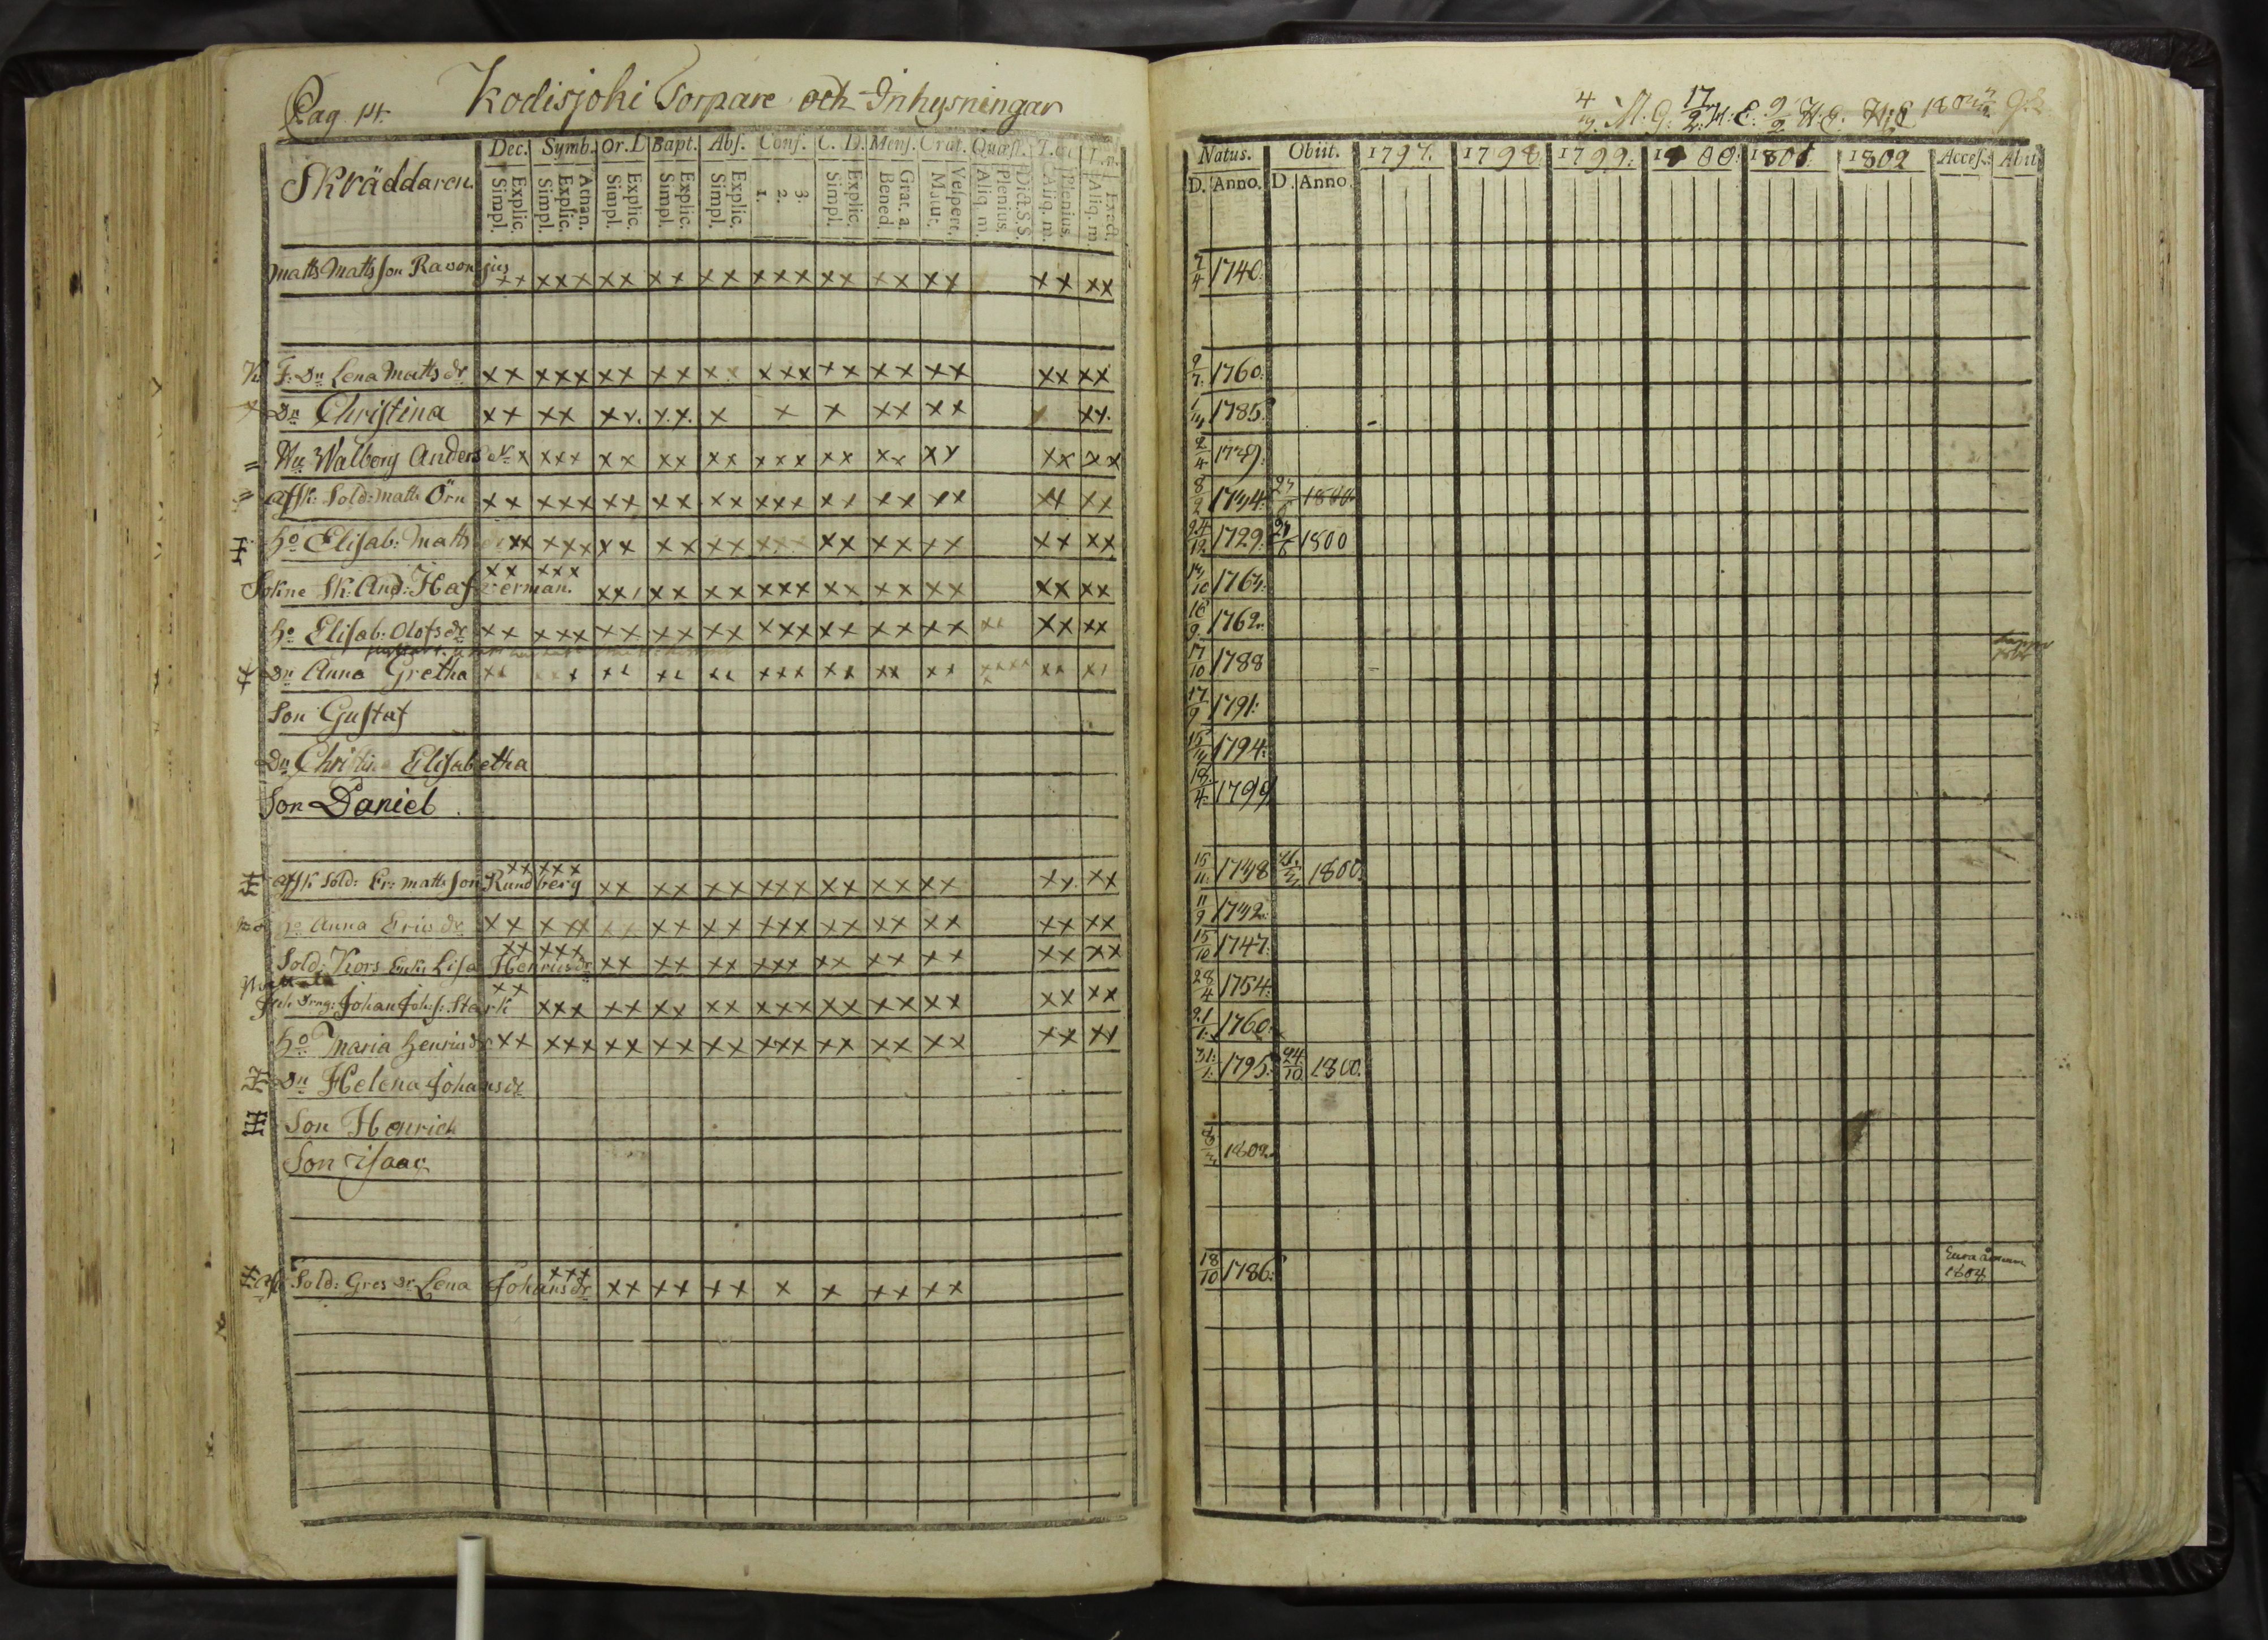 Pag. 14. Kodisjoki Torpare och Inhysningar
Skräddaren.
Dec. Symb. Or. D Bapt. Abs. Conf. C. D. Mens. Crat. Quæst.
Explic. Simpl. Athan. Explic. Simpl. Explic. Simpl. Explic. Simpl. Explic. Simpl. 3. 2. 1. Explic. Simpl. Grat. a. Bened. Velpert. Matut. Dict. S.S. Plenius. Aliq. m. Plenius. Aliq. m. Exact. Aliq. m.
Matts Matts son xx xxx xx xx xx xxx xx xx xx xx xx
F: Dr Lena Matts dr xx xxx xx xx xx xxx xx xx xx xx xx
Dr Christina xx xx xx. x.x. x x x xx xx x xx.
Walborg Anders xxx xx xx xx xxx xx xx xx xx xx
afsk. Sold: Matts Örn xx xxx xx xx xx xxx xx xx xx xx xx
ho Elisab: Matts xx xxx xx xx xx xxx xx xx xx xx xx
Sokne Sk: And: Hafverman. xx xxx xx xx xx xxx xx xx xx xx xx
ho Elisab: Olofs dr xx xxx xx xx xx xxx xx xx xx xx xx xx
Dr Anna Gretha xx xx xx xx xxx xx xx xx xx xx
Son Gustaf
Dr Christina Elisabetha
Son Daniel
afsk Sold: Er: Matts son Rundberg xx xxx xx xx xx xxx xx xx xx xx xx
ho Anna Erics dr xx xxx xx xx xx xxx xx xx xx xx xx
Sold: Kors Enk: Lisa Henrics dr xx xxx xx xx xx xxx xx xx xx xx xx
Johan Joh: s: Stark xx xxx xx xx xx xxx xx xx xx xx xx
ho Maria Henrics dr xx xxx xx xx xx xxx xx xx xx xx xx
Dr Helena Johans dr
Son Henrich
Son Isaac
Sold: Gres dr Lena Johans dr xxx xx xx xx x x xx xx
4 M: G: 17/2 H: E: 9/2
Natus. Obiit. 1797. 1798. 1799. 1800. 1801. 1802 Acces. Abit
D. Anno. D. Anno.
7/4 1740.
9/7 1760.
1785.
2/4
8/2 1744. 1800.
24/12 1729. 1800
1767.
16/9 1762.
17/10 1788
17/9 1791.
1794.
18/4 1799
15/11 1748 1800.
11/9 1742.
15/10 1747.
28/4 1754.
21/1 1760.
31/1 1795. 24/10 1800.
1802.
18/10 1786. Eura
1804